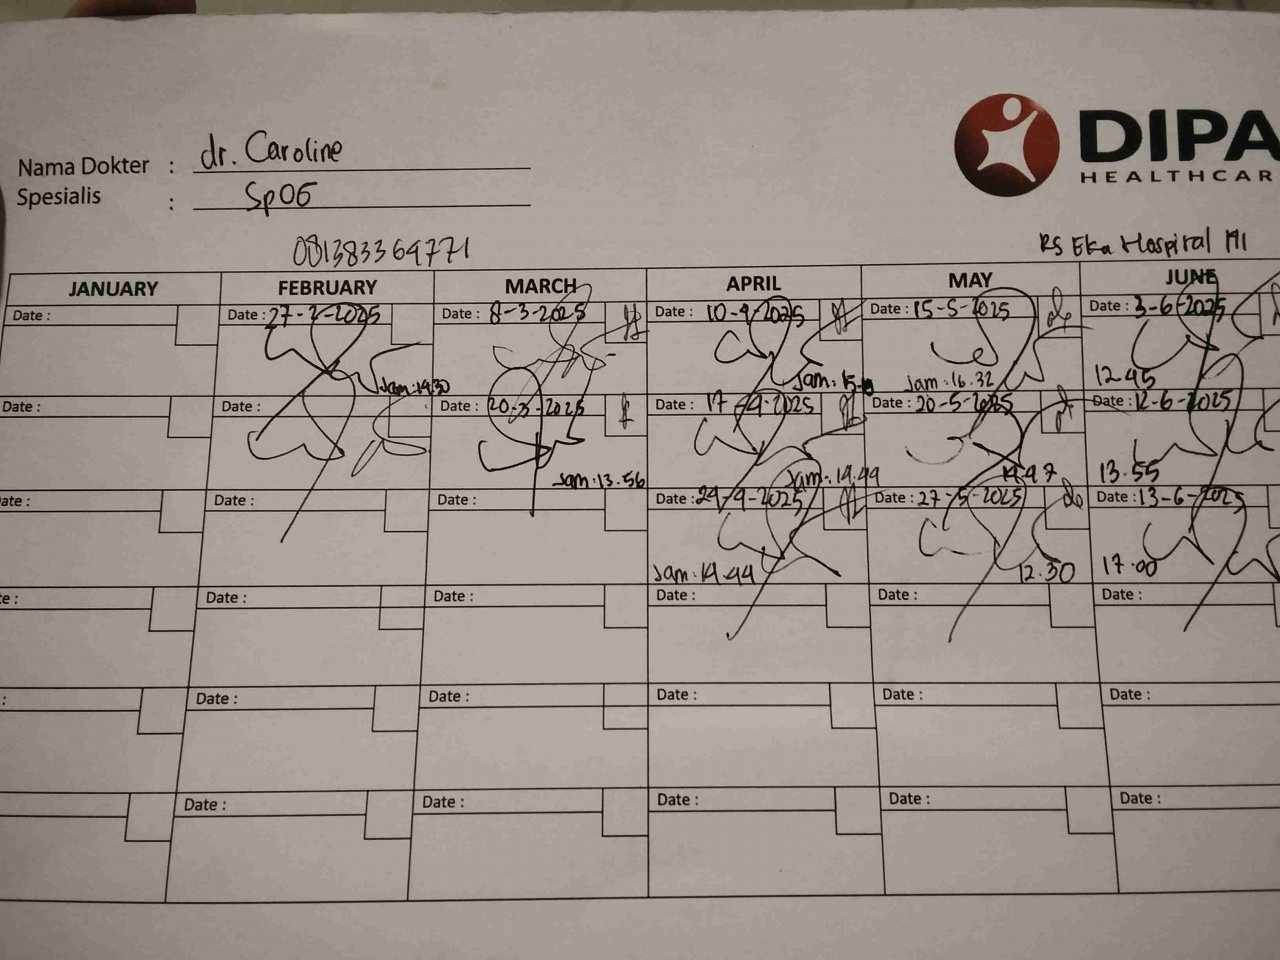 DIPA
HEALTHCAR
Nama Dokter : dr. Caroline
Spesialis : SpOG
081383369771
RS Eka Hospital
JANUARY FEBRUARY MARCH APRIL MAY JUNE
Date : Date : 27-2-2025 Date : 8-3-2025 Date : 10-4-2025 Date : 15-5-2025 Date : 3-6-2025
Jam : 14.30 Jam : 15. Jam : 16.32 12.45
Date : Date : Date : 20-3-2025 Date : 17-4-2025 Date : 20-5-2025 Date : 12-6-2025
Jam : 13.56 Jam : 14.44 14.47 13.55
ate : Date : Date : Date : 24-4-2025 Date : 27-5-2025 Date : 13-6-2025
Jam : 14.44 12.30 17.00
te : Date : Date : Date : Date : Date :
: Date : Date : Date : Date : Date :
Date : Date : Date : Date : Date :